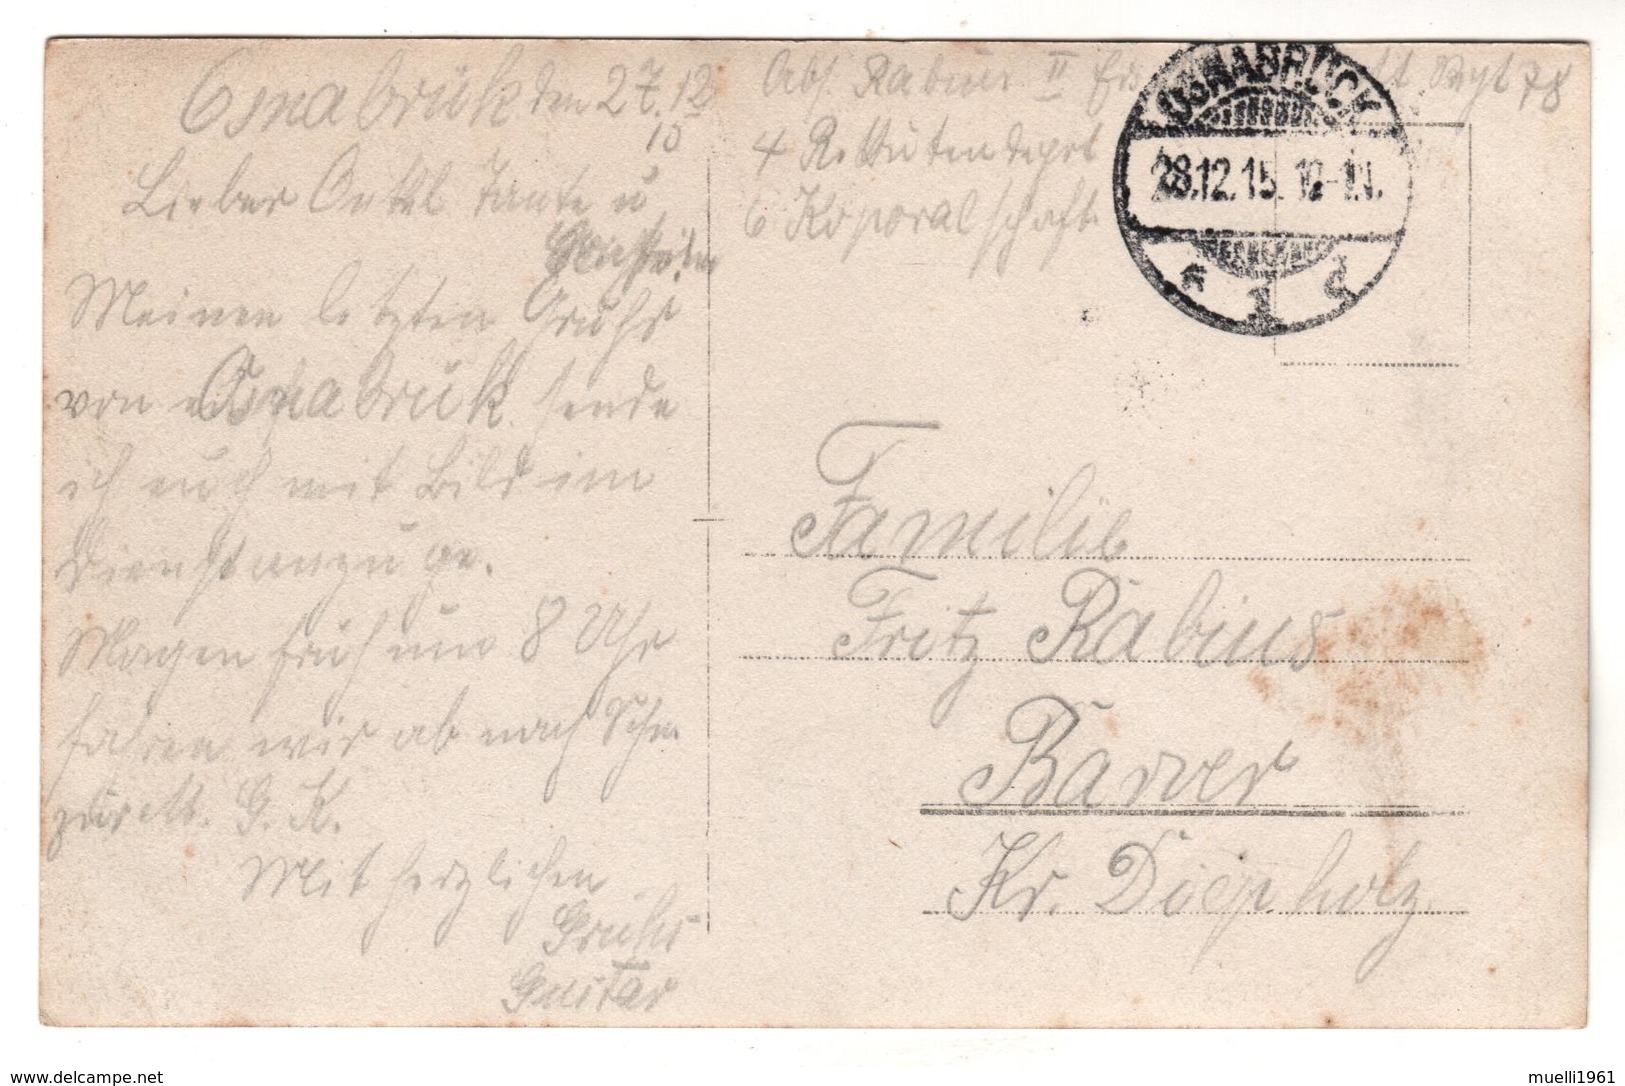 Osnabrük den 27.12
15
Lieber Onkel Tante u
Meinen letzten Gruhs
von Osnabruk sende
ich euch mit Bild im
Dienstanzuge.
Morgen früh um 8 Uhr
fahren wir ab nach
G. K.
Mit herzlichen
Gruhs
Gustav
Abs. Rabius II Ers. Regt 78
4 Rekrutendepot
6 Koporalschaft
OSNABRÜCK
28.12.15. 12-1N.
1
Familie
Fritz Rabius
Barver
Kr. Diepholz.
www.delcampe.net
muelli1961